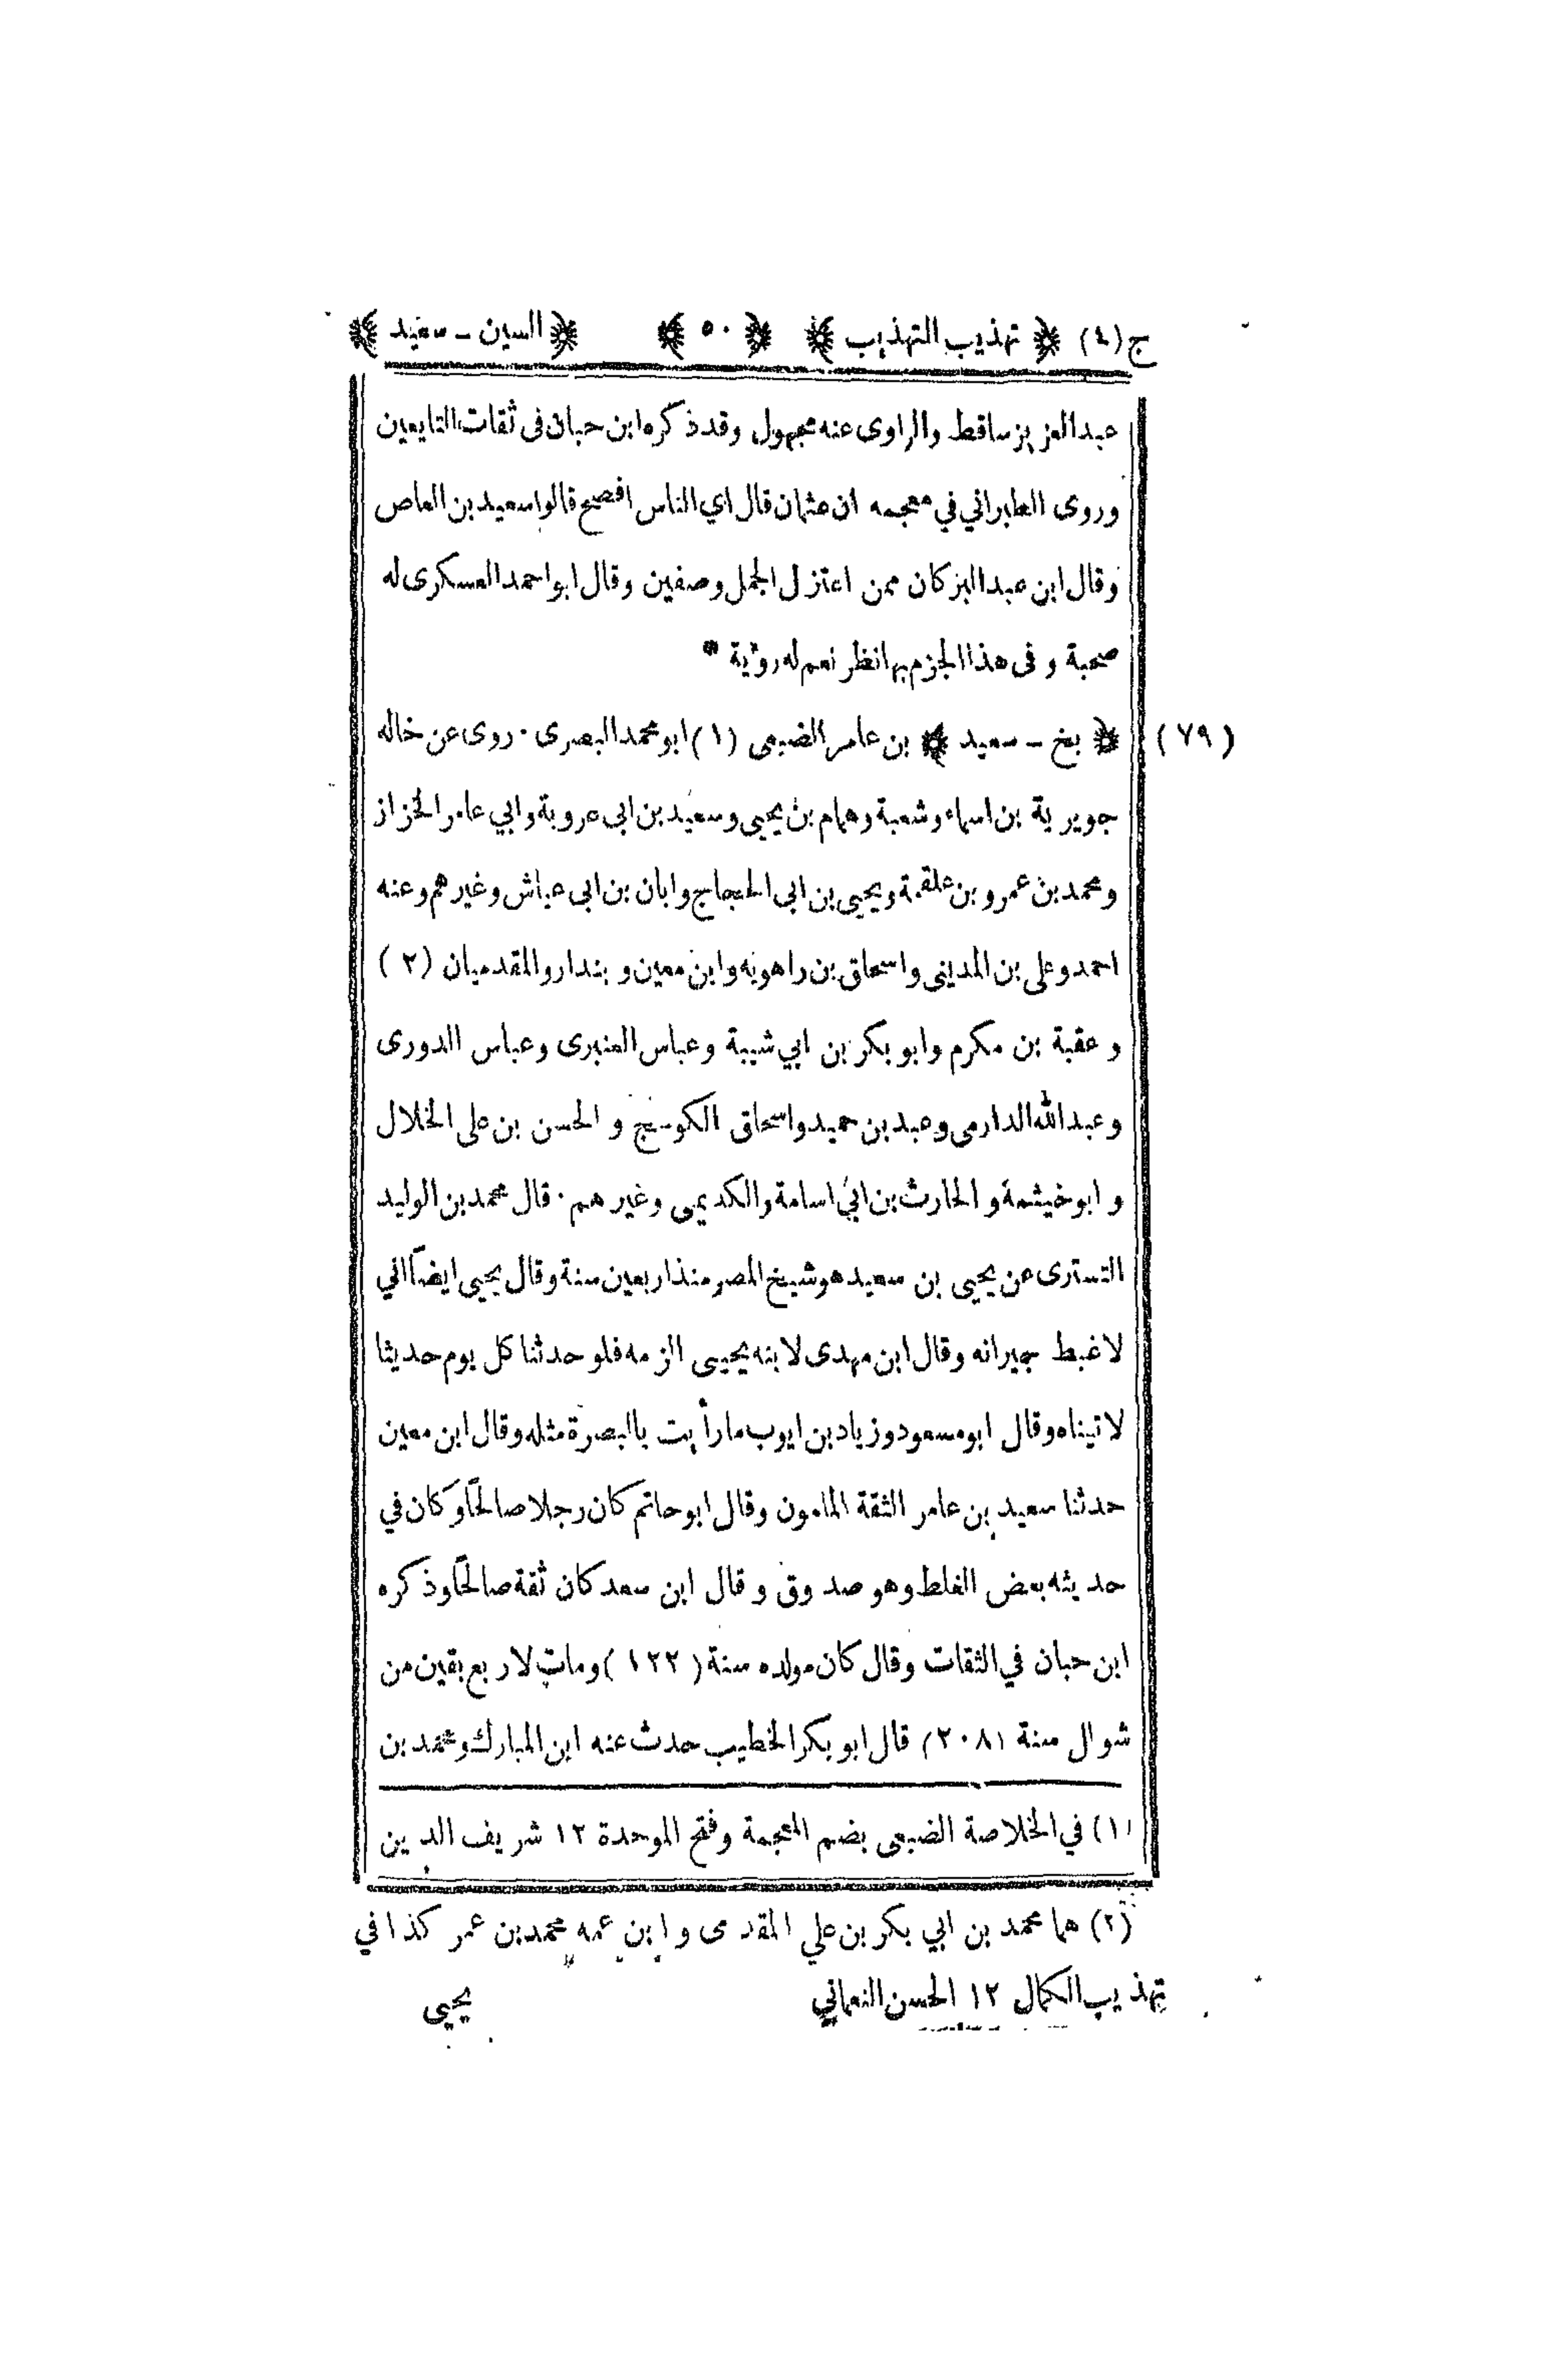 ج (٤) ﴿ تهذيب التهذيب ﴾ ﴿ ٥٠ ﴾ ﴿ السين ــ سعيد ﴾
عبد العزيز ساقط والراوى عنه مجهول وقد ذكره ابن حبان فى ثقات التابعين
وروى الطبراني في معجمه ان عثمان قال اي الناس افصح قالوا سعيد بن العاص
وقال ابن عبد البر كان ممن اعتزل الجمل وصفين وقال ابو احمد العسكرى له
صحبة و فى هذا الجزم بها نظر نعم له رؤية *
(٧٩) ﴿ بخ ــ سعيد ﴾ بن عامر الضبعى (١) ابو محمد البصرى · روى عن خاله
جويرية بن اسماء وشعبة وهمام بن يحيى وسعيد بن ابى عروبة وابي عامر الخزاز
ومحمد بن عمرو بن علقمة ويحيى بن ابى الحجاج وابان بن ابى عياش وغيرهم وعنه
احمد وعلى بن المدينى واسحاق بن راهويه وابن معين و بندار والمقدميان (٢)
و عقبة بن مكرم وابو بكر بن ابي شيبة وعباس العنبرى وعباس الدورى
وعبد الله الدارمى وعبد بن حميد واسحاق الكوسج و الحسن بن على الخلال
و ابو خيثمة و الحارث بن ابي اسامة والكديمى وغيرهم · قال محمد بن الوليد
التسترى عن يحيى بن سعيد هو شيخ المصر منذ اربعين سنة وقال يحيى ايضاً اني
لاغبط جيرانه وقال ابن مهدى لابنه يحيى الزمه فلو حدثنا كل يوم حديثا
لاتيناه وقال ابو مسعود وزياد بن ايوب ما رأيت بالبصرة مثله وقال ابن معين
حدثنا سعيد بن عامر الثقة المامون وقال ابو حاتم كان رجلا صالحاً وكان في
حديثه بعض الغلط وهو صدوق و قال ابن سعد كان ثقة صالحاً وذكره
ابن حبان في الثقات وقال كان مولده سنة (١٢٢) ومات لاربع بقين من
شوال سنة (٢٠٨) قال ابو بكر الخطيب حدث عنه ابن المبارك ومحمد بن
(١) في الخلاصة الضبعى بضم المعجمة وفتح الموحدة ١٢ شريف الدين
(٢) هما محمد بن ابي بكر بن علي المقدمى و ابن عمه محمد بن عمر كذا في
تهذيب الكمال ١٢ الحسن النعماني يحيى